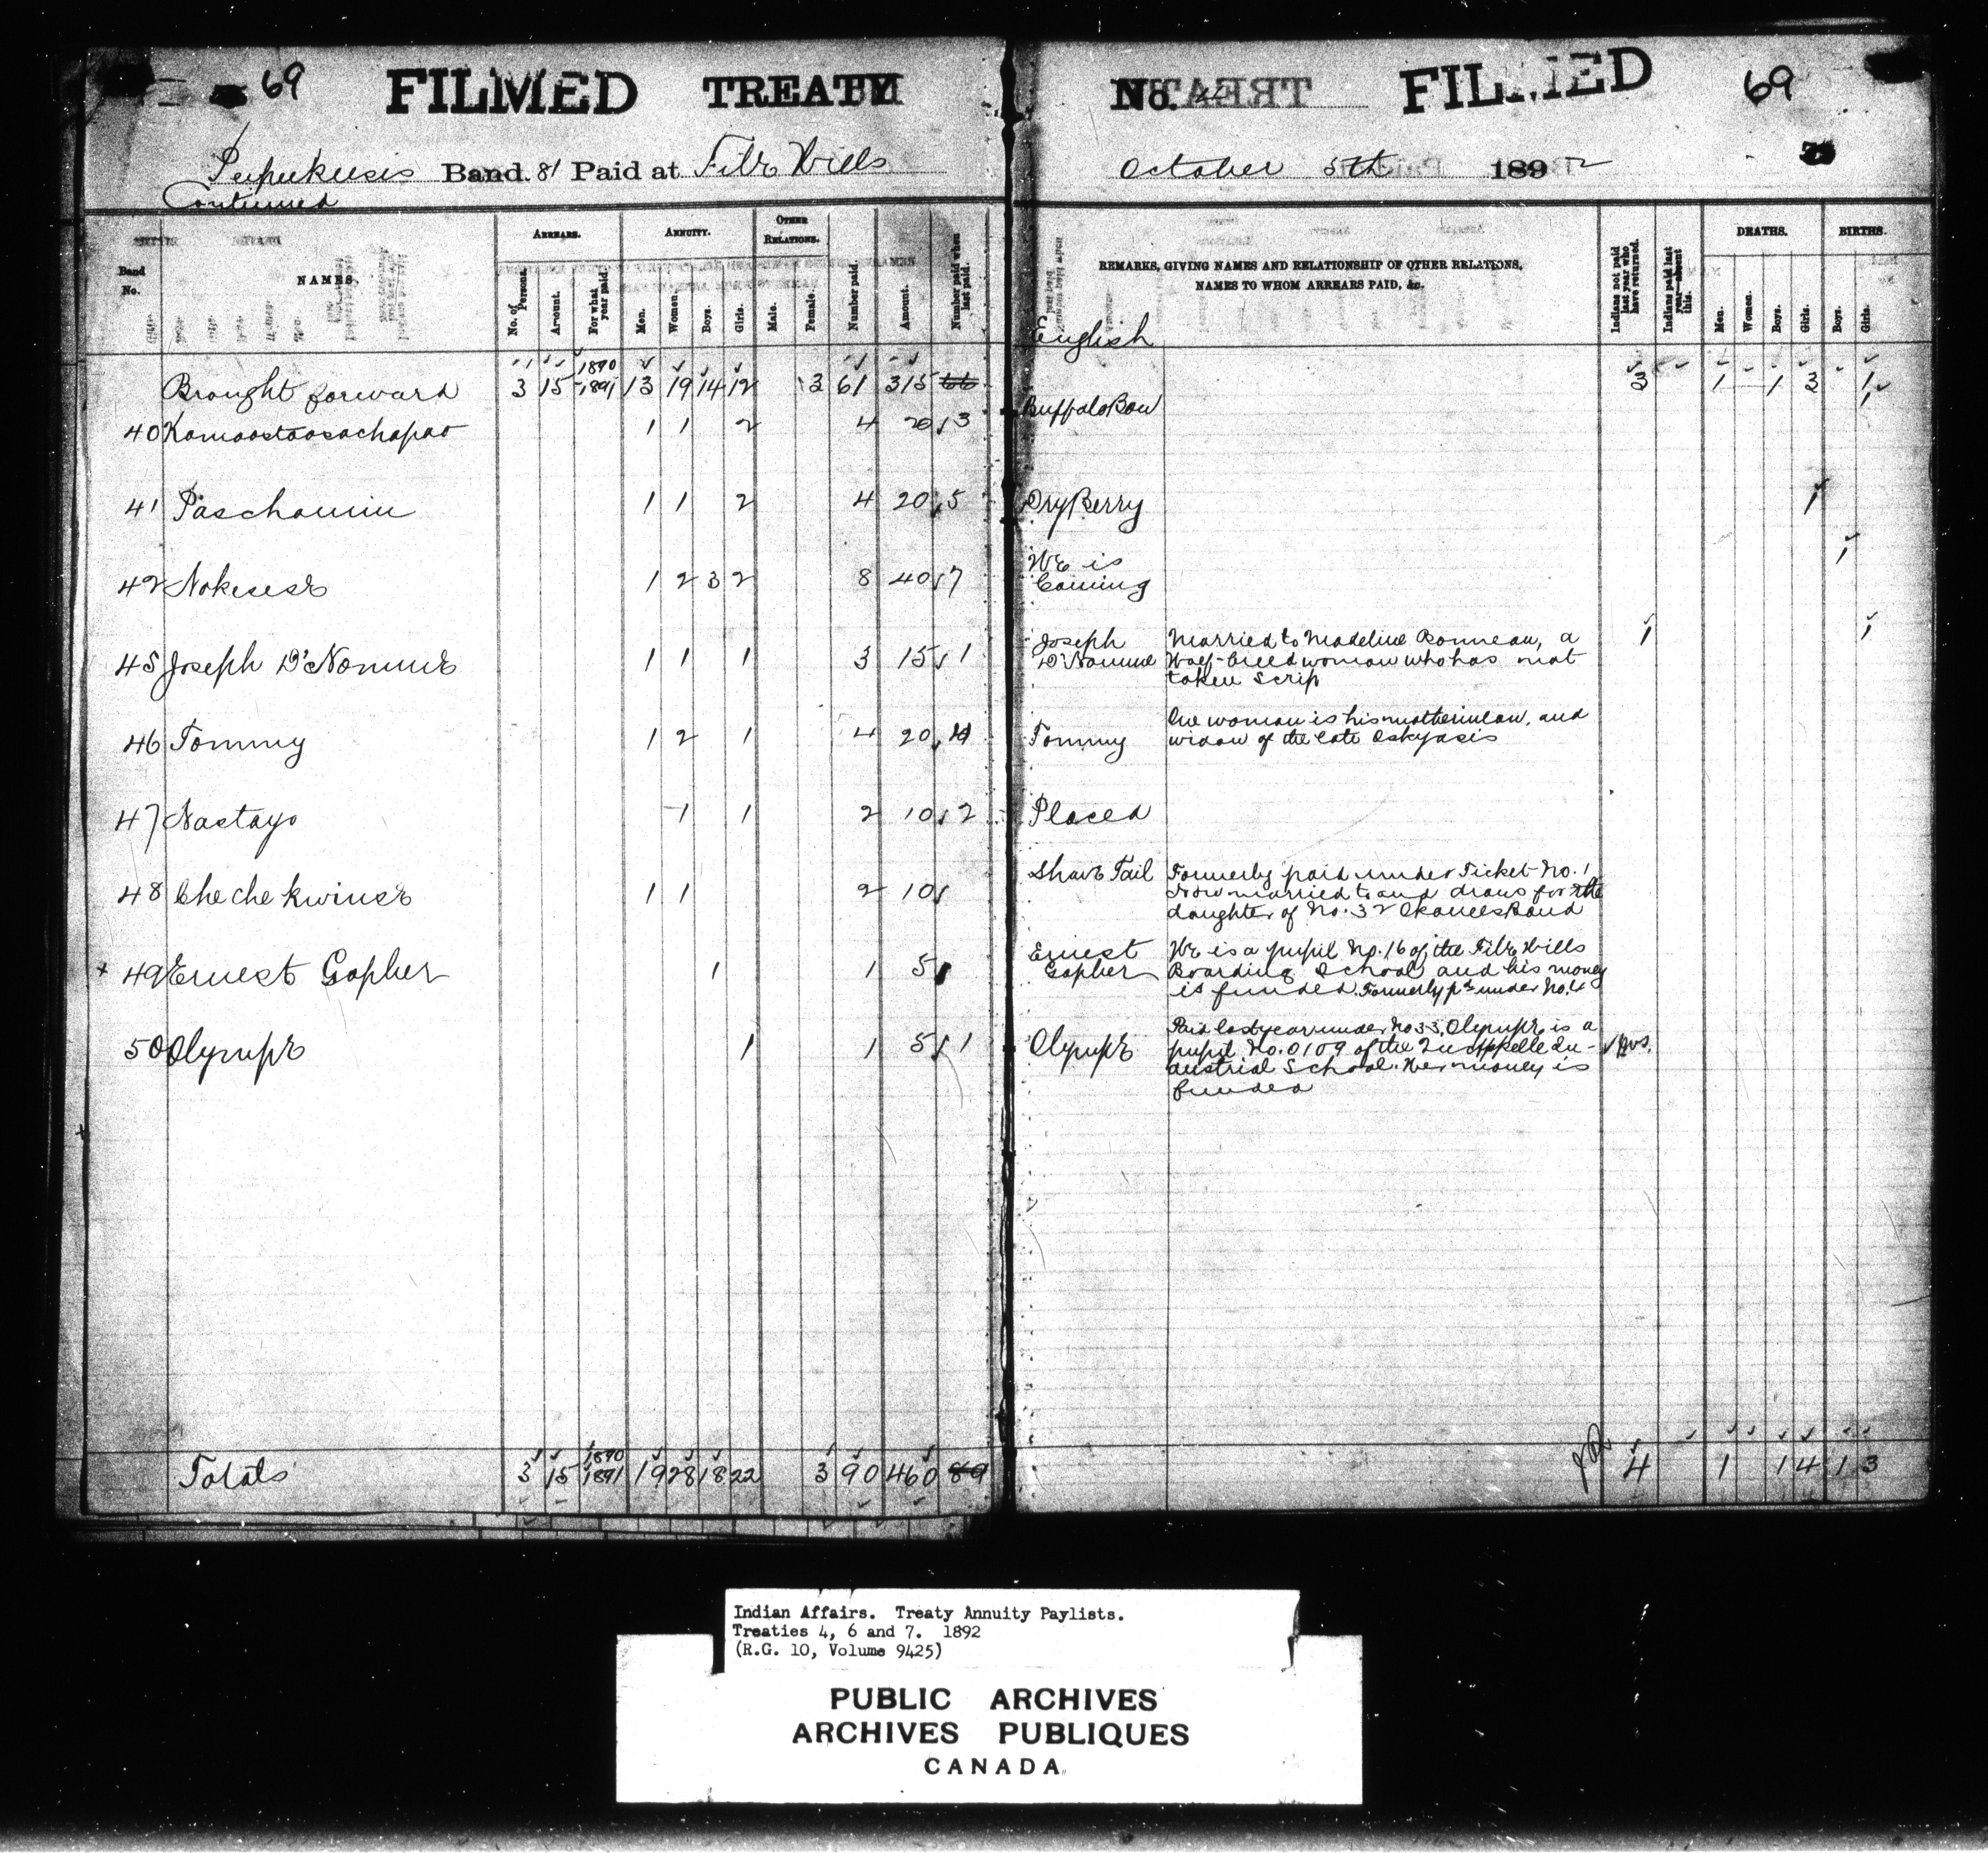 69 FILMED TREATY No. 4 FILMED 69
Pepeekeesis Band. 81 Paid at File Hills October 5th 1892
Continued
Band No. NAMES. ARREARS. No. of Persons. Amount. For what year paid. ANNUITY. Men. Women. Boys. Girls. OTHER RELATIONS. Male. Female. Number paid Amount. Number paid when last paid.
REMARKS, GIVING NAMES AND RELATIONSHIP OF OTHER RELATIONS, NAMES TO WHOM ARREARS PAID, &c.
Indians not paid last year who have returned. Indians paid last year—absent this. DEATHS. Men. Women. Boys. Girls. BIRTHS. Boys. Girls.
English
Brought forward 3 15 1890 1891 13 19 14 12 3 61 315 66 3 1 1 3 1
40 Kamoostoosochapao 1 1 2 4 20 3 Buffalo Bow
41 Paschamin 1 1 2 4 20 5 Dry Berry 1
42 Nokesese 1 2 3 2 8 40 7 He is Coming 1
45 Joseph D'Nomme 1 1 1 3 15 1 Joseph D'Nomme 1 1
Married to Madeline Bonneau, a
Half-breed woman who has not
taken scrip
46 Tommy 1 2 1 4 20 4 Tommy
One woman is his motherinlaw, and
widow of the late Oskyasis
47 Nastayo 1 1 2 10 2 Placed
48 Chechekwinse 1 1 2 10 Shave Tail
Formerly paid under Ticket No. 1
Now married to and draws for the
daughter of No. 32 Okanees Band
+ 49 Ernest Gopher 1 1 5 Ernest Gopher
He is a pupil No. 16 of the File Hills
Boarding School and his money
is funded. Formerly pd under No. 4
50 Olympe 1 1 5 1 Olympe
Paid last year under No 33, Olympe is a
pupil No. 0109 of the Qu'Appelle In-
dustrial School. Her money is
funded
Totals 3 15 1890 1891 19 28 18 22 3 90 460 89 4 1 1 4 1 3
Indian Affairs. Treaty Annuity Paylists.
Treaties 4, 6 and 7. 1892
(R.G. 10, Volume 9425)
PUBLIC ARCHIVES
ARCHIVES PUBLIQUES
CANADA